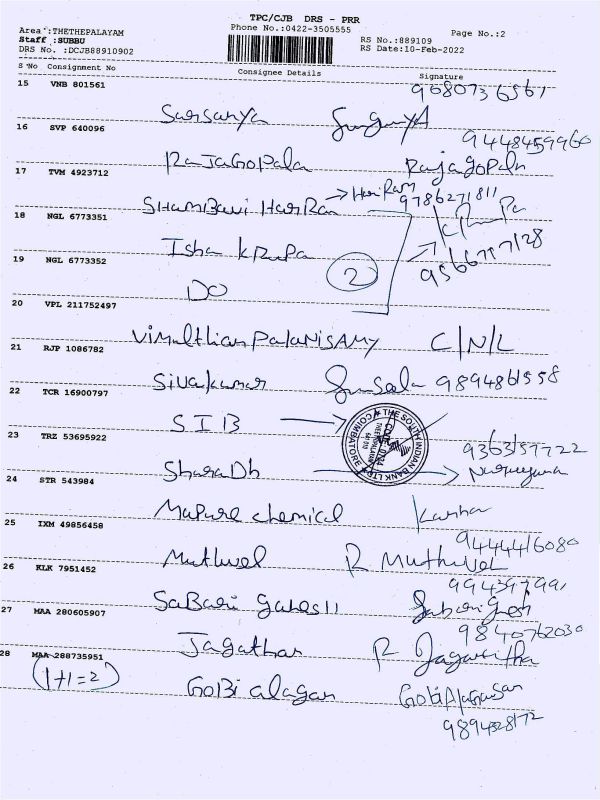 TPC/CJB DRS - PRR
Area :THETHEPALAYAM
Phone No.:0422-3505555
Page No.:2
Staff :SUBBU
RS No.:889109
DRS No. :DCJB88910902
RS Date:10-Feb-2022
S No Consignment No Consignee Details Signature
15 VNB 801561
9680736561
Sarsanya
16 SVP 640096
9448459960
RAJAGOPALA Rajagopaln
17 TVM 4923712
→ Hari Ram
9786271811
SHAMBAVI HARRAN
18 NGL 6773351
Isha KRUPA
9566777128
19 NGL 6773352
2
DO
20 VPL 211752497
VIMULTHIAN PALANISAMY C/N/L
21 RJP 1086782
Sivakumar 9894861558
22 TCR 16900797
SIB →
THE SOUTH INDIAN BANK LTD
COIMBATORE
23 TRZ 53695922
9363157722
SharaDh →
24 STR 543984
Mapure chemical
25 IXM 49856458
9444416080
Muthuvel R Muthuvel
26 KLK 7951452
994397991
Sabari Ganesh
27 MAA 280605907
9840762030
Jagathan
28 MAA 288735951
(1+1=2)
GoBi alagan
9894328172